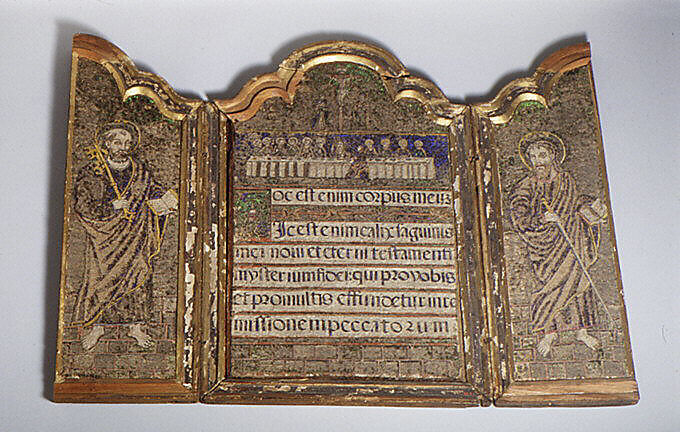 oc est enim corpus meuz
Ic est enim calix saguinis
mei novi et eterni testamenti
mysterium fidei: qui pro vobis
et pro multis effundetur in re
missionem peccatorum